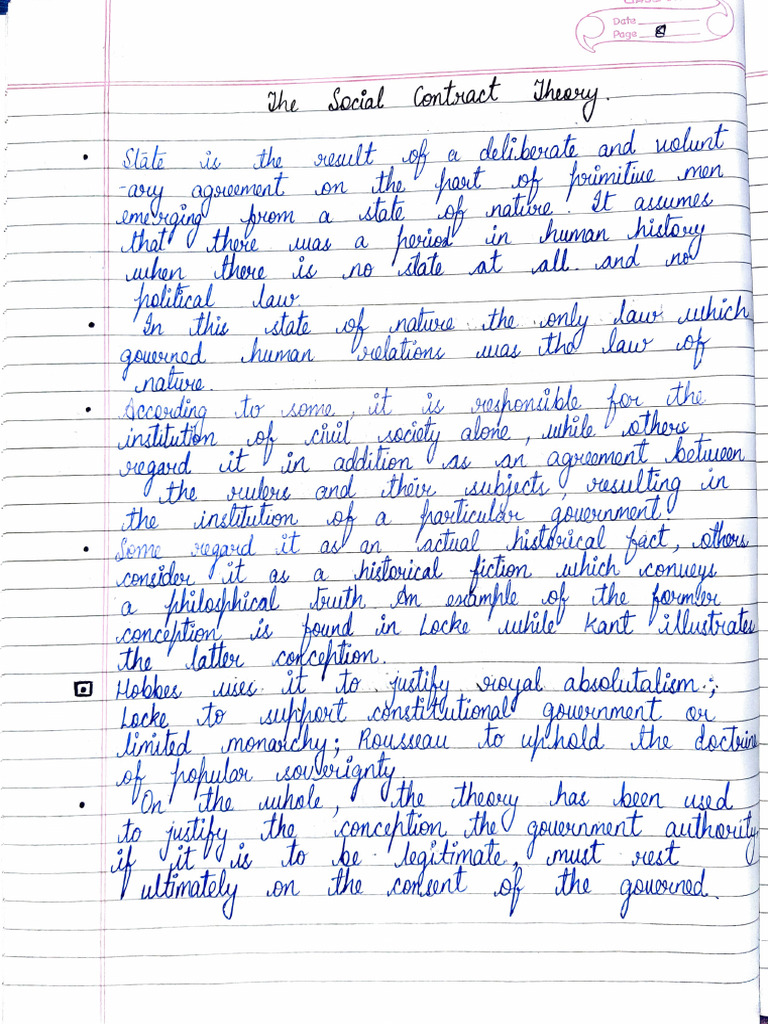 Date
Page 8
The Social Contract Theory.
• State is the result of a deliberate and volunt
-ary agreement on the part of primitive men
emerging from a state of nature. It assumes
that there was a period in human history
when there is no state at all and no
political law.
• In this state of nature the only law which
governed human relations was the law of
nature.
• According to some, it is responsible for the
institution of civil society alone, while others
regard it in addition as an agreement between
the rulers and their subjects, resulting in
the institution of a particular government.
• Some regard it as an actual historical fact, others
consider it as a historical fiction which conveys
a philosphical truth. An example of the former
conception is found in Locke while Kant illustrates
the latter conception.
Hobbes uses it to justify royal absolutalism;
Locke to support constitutional government or
limited monarchy; Rousseau to uphold the doctrine
of popular soverignty
• On the whole, the theory has been used
to justify the conception the government authority,
if it is to be legitimate, must rest
ultimately on the consent of the governed.